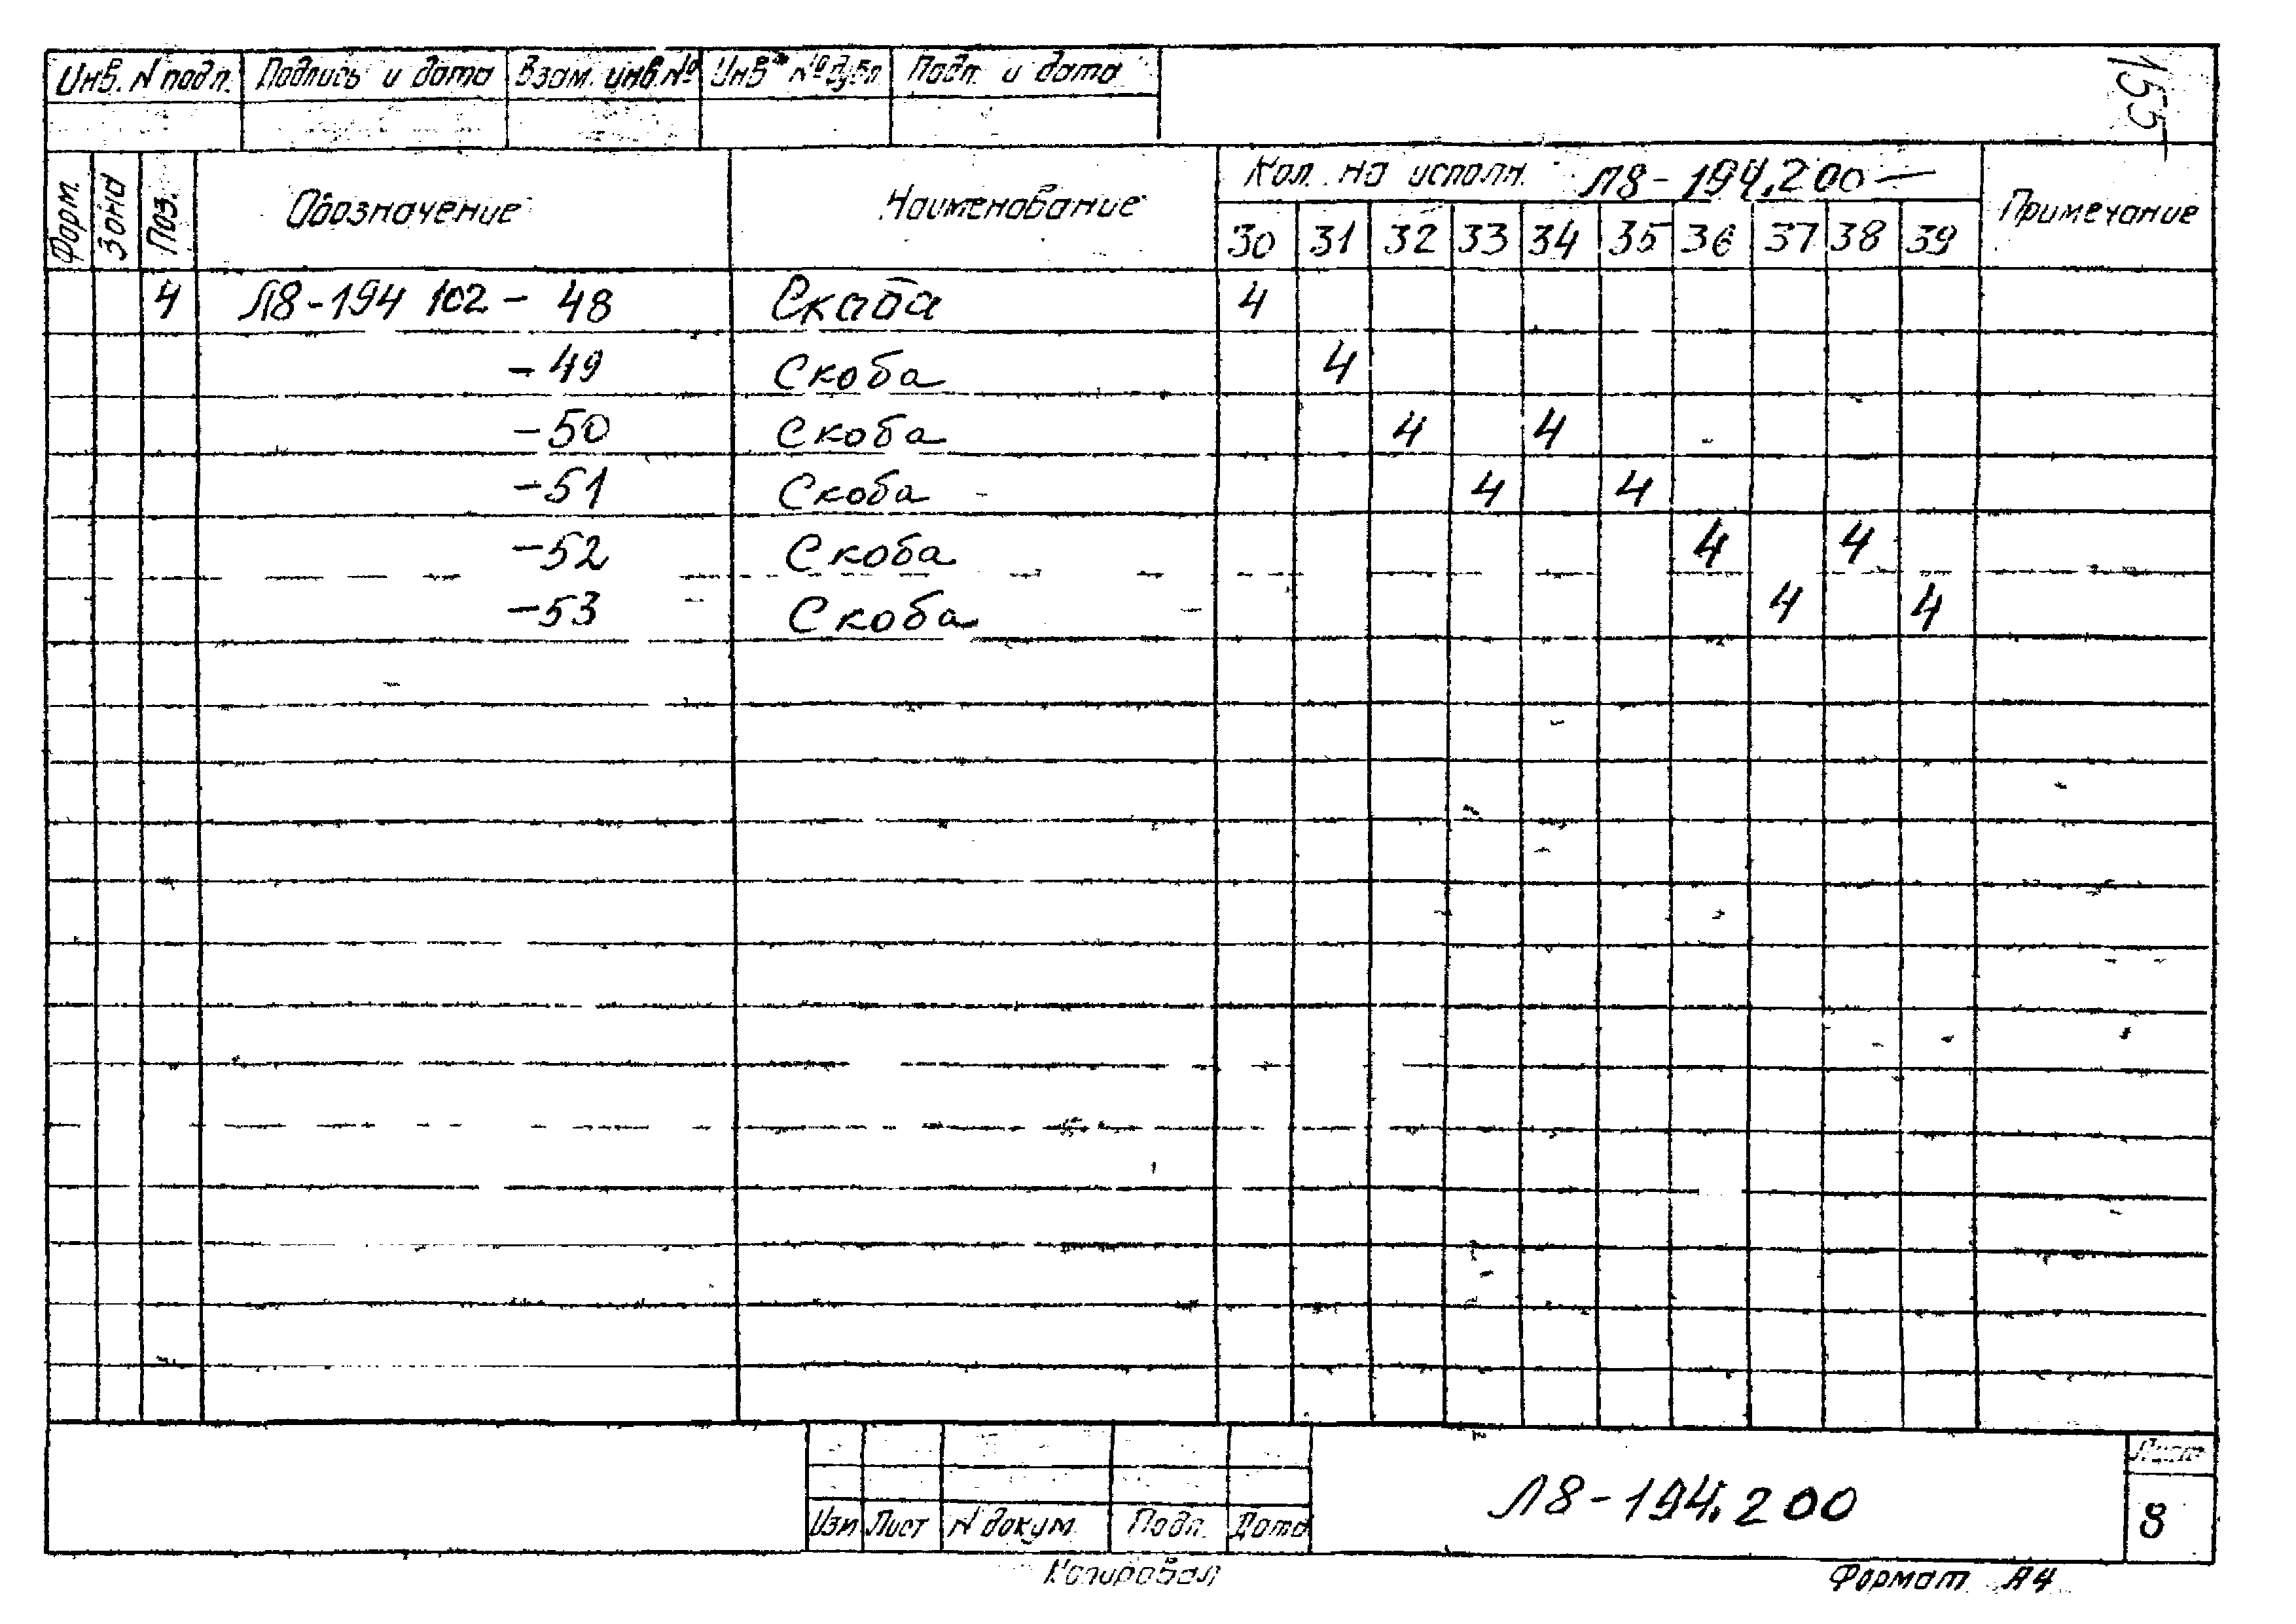 155
Инв. N подл. Подпись и дата Взам. инв. № Инв. № дубл Подп. и дата
Форм. Зона Поз. Обозначение Наименование Кол. на исполн. Л8-194.200— Примечание
30 31 32 33 34 35 36 37 38 39
4 Л8-194 102 - 48 Скоба 4
-49 Скоба 4
-50 Скоба 4 4
-51 Скоба 4 4
-52 Скоба 4 4
-53 Скоба 4 4
Изм Лист N докум. Подп. Дата Л8-194.200 Лист
8
Копировал Формат А4